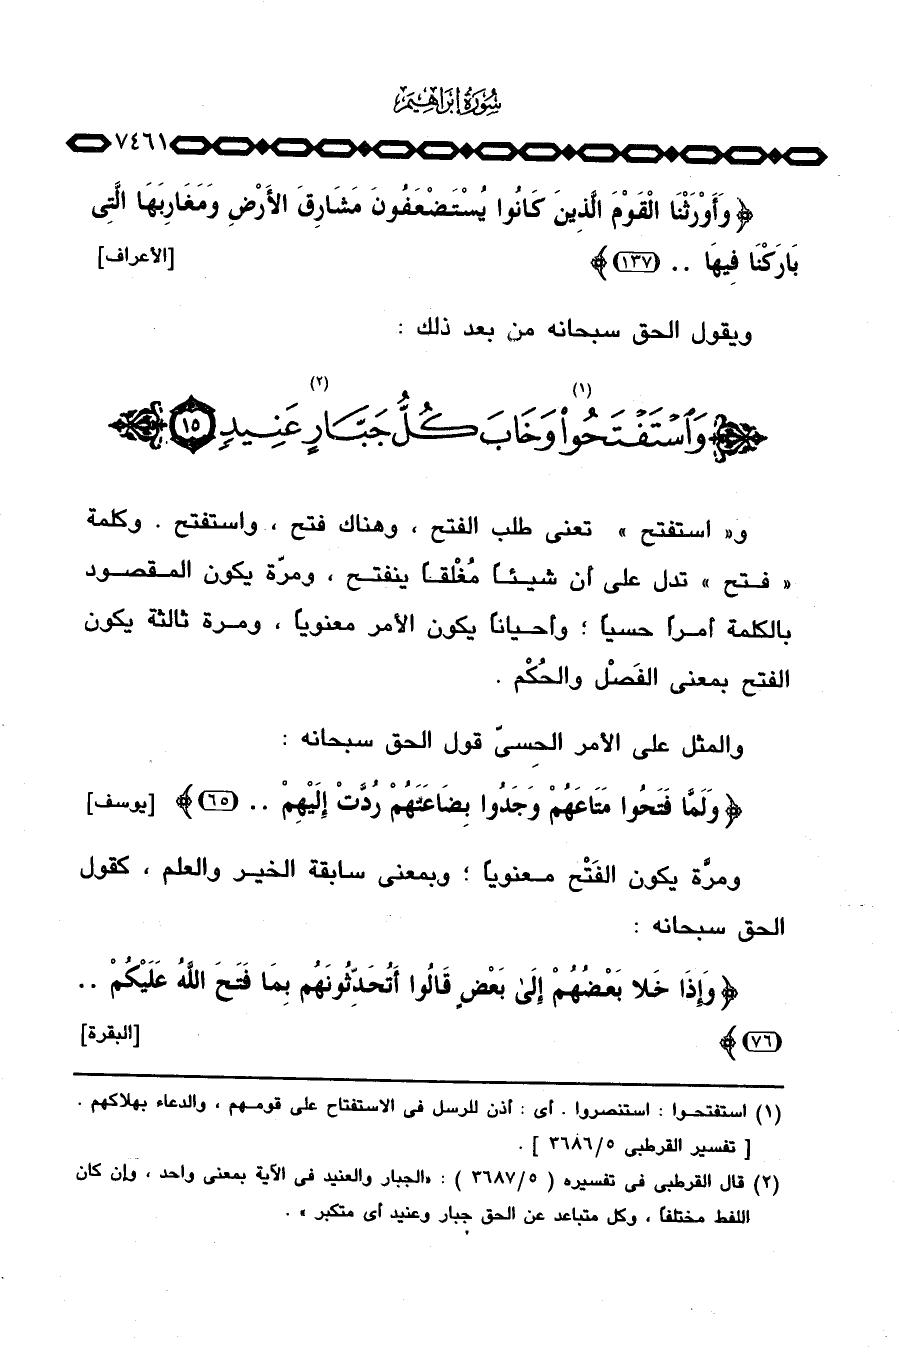 سُورَةُ إِبْرَاهِيم
٧٤٦١
﴿ وَأَوْرَثْنَا الْقَوْمَ الَّذِينَ كَانُوا يُسْتَضْعَفُونَ مَشَارِقَ الأَرْضِ وَمَغَارِبَهَا الَّتِى
بَارَكْنَا فِيهَا .. (١٣٧) ﴾ [الأعراف]
ويقول الحق سبحانه من بعد ذلك :
﴿ وَٱسْتَفْتَحُوا۟ (١) وَخَابَ كُلُّ جَبَّارٍ (٢) عَنِيدٍ ١٥ ﴾
و« استفتح » تعنى طلب الفتح ، وهناك فتح ، واستفتح . وكلمة
« فتح » تدل على أن شيئاً مُغْلقاً ينفتح ، ومرّة يكون المقصود
بالكلمة أمراً حسياً ؛ وأحياناً يكون الأمر معنوياً ، ومرة ثالثة يكون
الفتح بمعنى الفَصْل والحُكْم .
والمثل على الأمر الحسىّ قول الحق سبحانه :
﴿ وَلَمَّا فَتَحُوا مَتَاعَهُمْ وَجَدُوا بِضَاعَتَهُمْ رُدَّتْ إِلَيْهِمْ .. (٦٥) ﴾ [يوسف]
ومرَّة يكون الفَتْح معنوياً ؛ وبمعنى سابقة الخير والعلم ، كقول
الحق سبحانه :
﴿ وَإِذَا خَلا بَعْضُهُمْ إِلَىٰ بَعْضٍ قَالُوا أَتُحَدِّثُونَهُم بِمَا فَتَحَ اللَّهُ عَلَيْكُمْ ..
(٧٦) ﴾ [البقرة]
(١) استفتحوا : استنصروا . أى : أذن للرسل فى الاستفتاح على قومهم ، والدعاء بهلاكهم .
[ تفسير القرطبى ٣٦٨٦/٥ ] .
(٢) قال القرطبى فى تفسيره ( ٣٦٨٧/٥ ) : «الجبار والعنيد فى الآية بمعنى واحد ، وإن كان
اللفظ مختلفاً ، وكل متباعد عن الحق جبار وعنيد أى متكبر » .